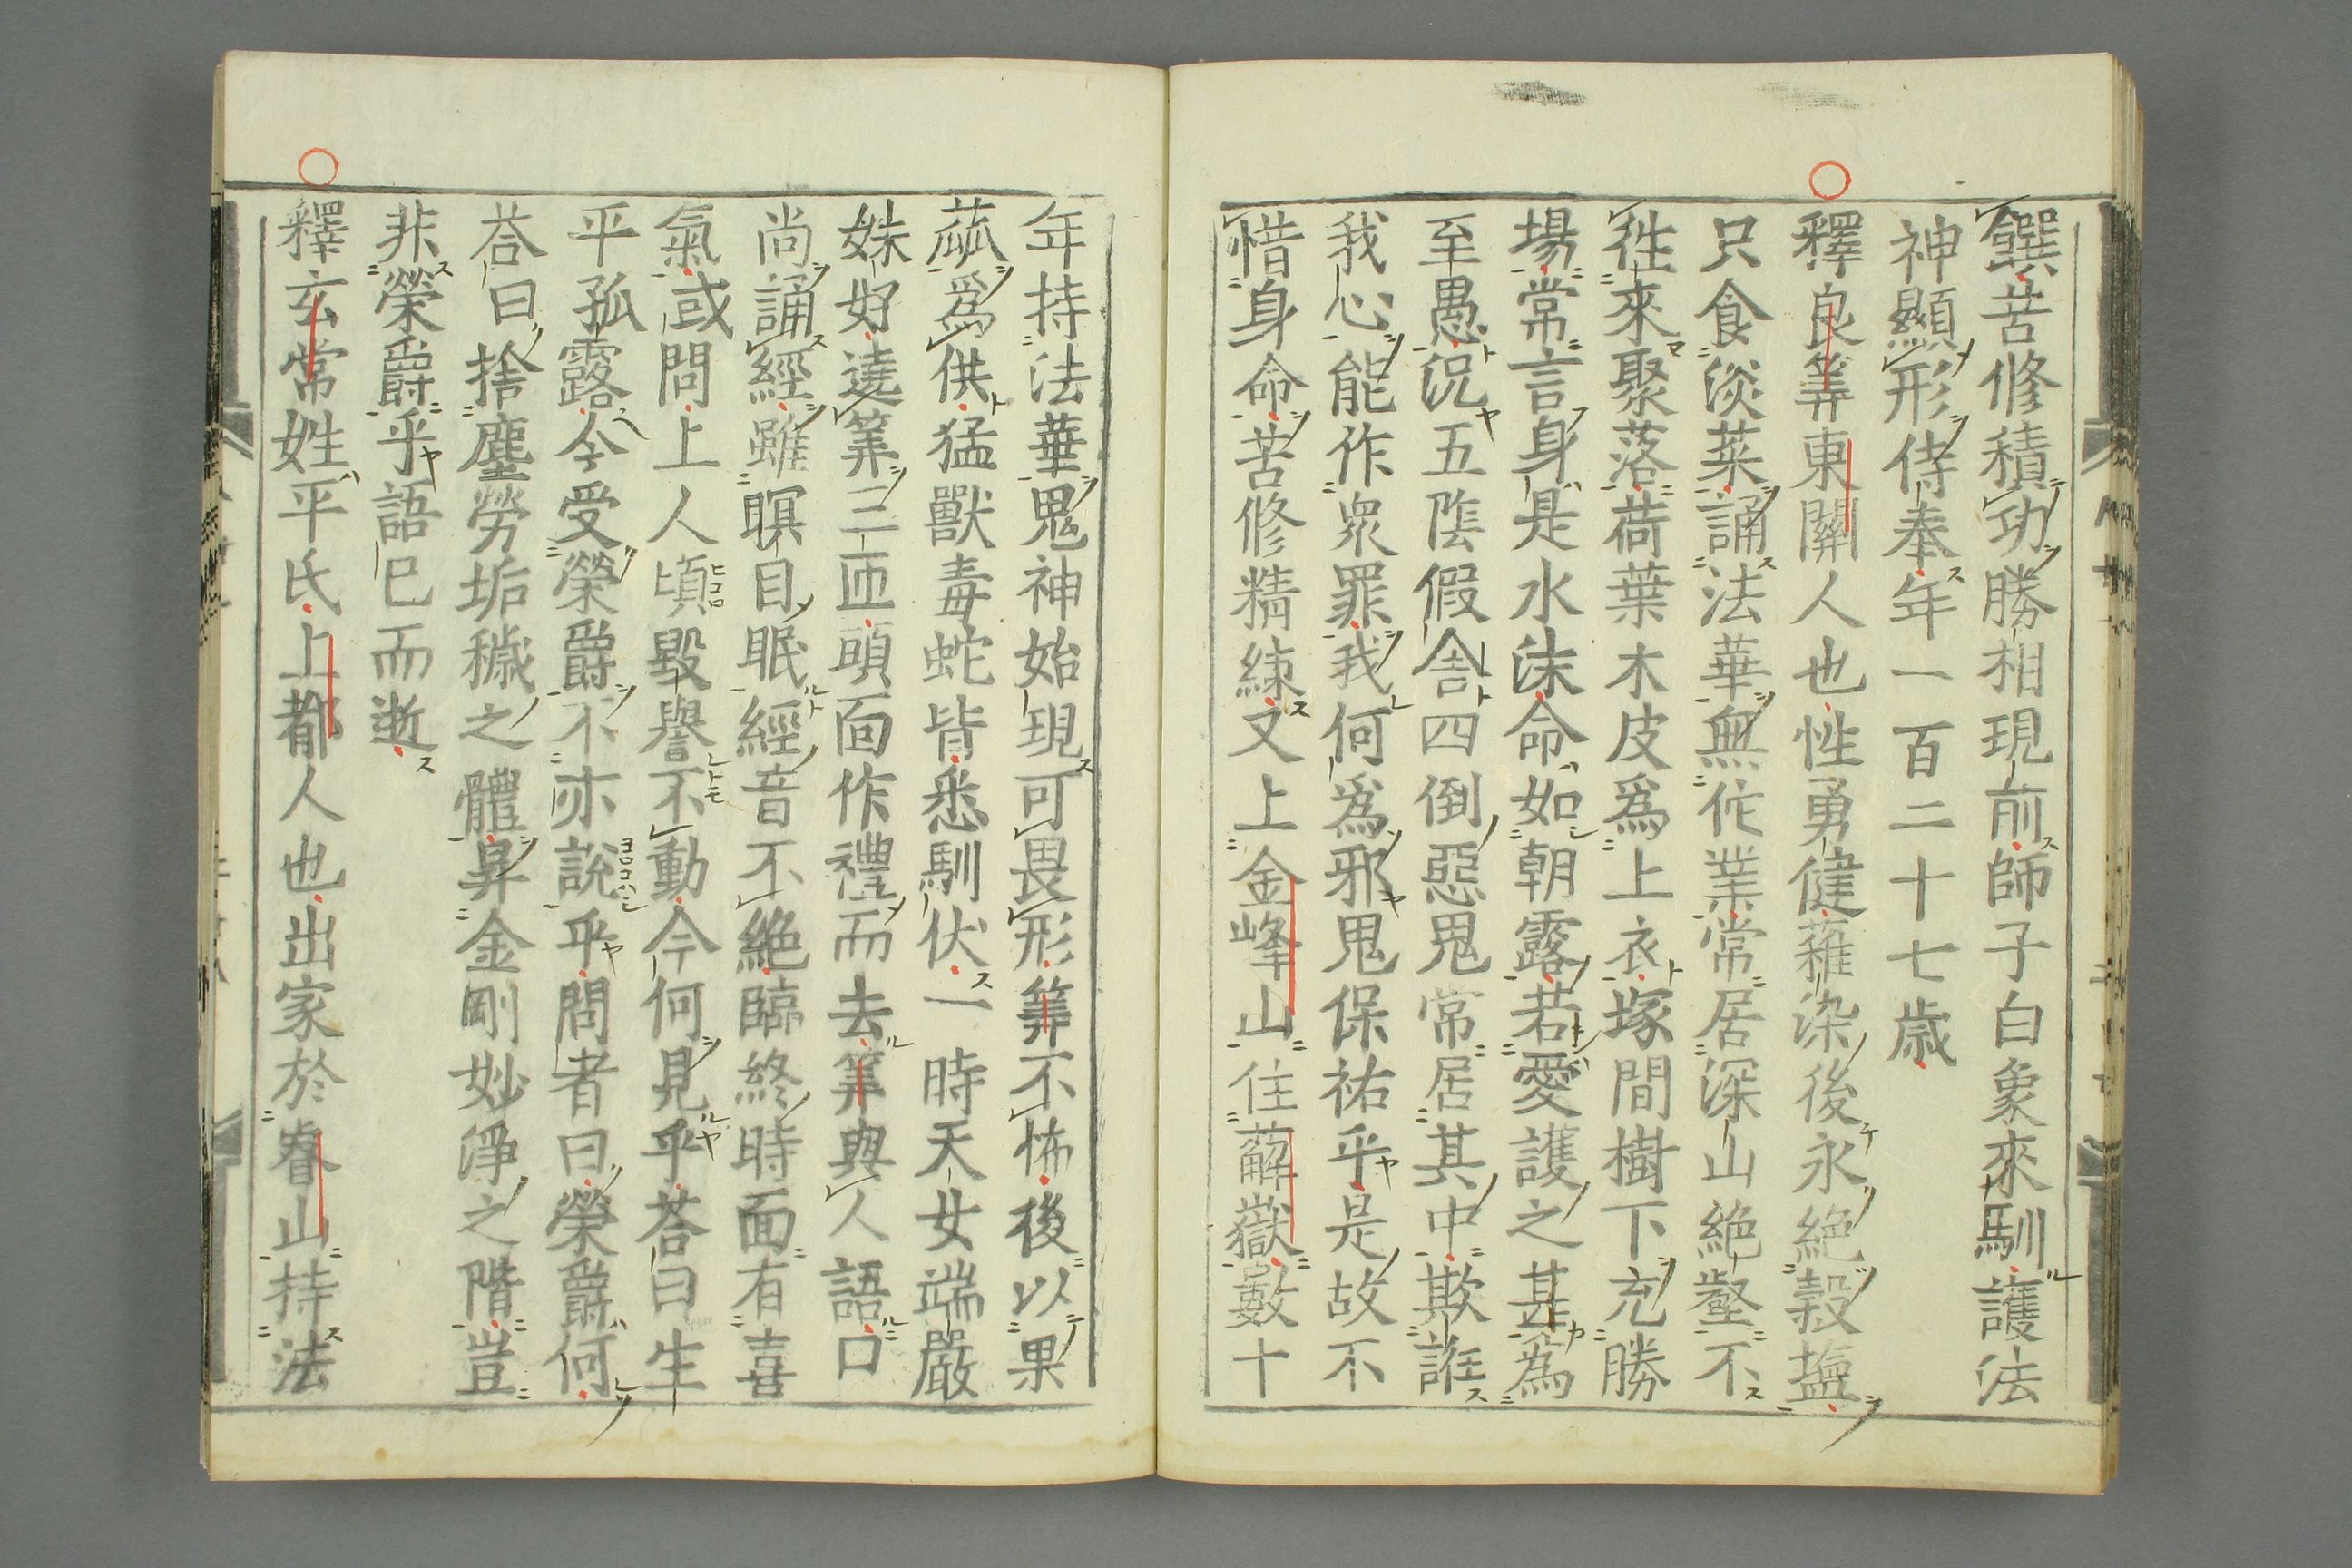 饌苦修積功勝相現前師子白象來馴護法
神顯形侍奉年一百二十七歳
釋良筭東關人也性勇健薙染後永絶穀鹽
只食淡菜誦法華無佗業常居深山絶壑不
徃來聚落荷葉木皮爲上衣塚間樹下充勝
場常言身是水沫命如朝露若愛護之甚爲
至愚况五陰假舎四倒惡鬼常居其中欺誑
我心能作衆罪我何爲邪鬼保祐乎是故不
惜身命苦修精練又上金峰山住薢嶽數十
年持法華鬼神始現可畏形筭不怖後以果
蓏爲供猛獸毒蛇皆悉馴伏一時天女端嚴
姝好遶筭三匝頭面作禮而去筭與人語口
尚誦經雖瞑目眠經音不絶臨終時面有喜
氣或問上人頃毀譽不動今何見乎荅曰生
平孤露今受榮爵不亦説乎問者曰榮爵何
荅曰捨塵勞垢穢之體昇金剛妙淨之階豈
非榮爵乎語已而逝
釋玄常姓平氏上都人也出家於睿山持法